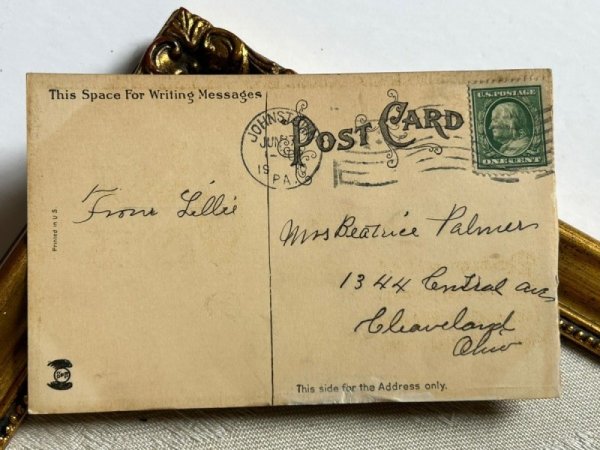 This Space For Writing Messages
POST CARD
JOHNSTOWN
JUN
PA.
U.S. POSTAGE
ONE CENT
From Lillie
Mrs Beatrice Palmer
1344 Central ave
Cleaveland
Ohio
Printed in U.S.
This side for the Address only.